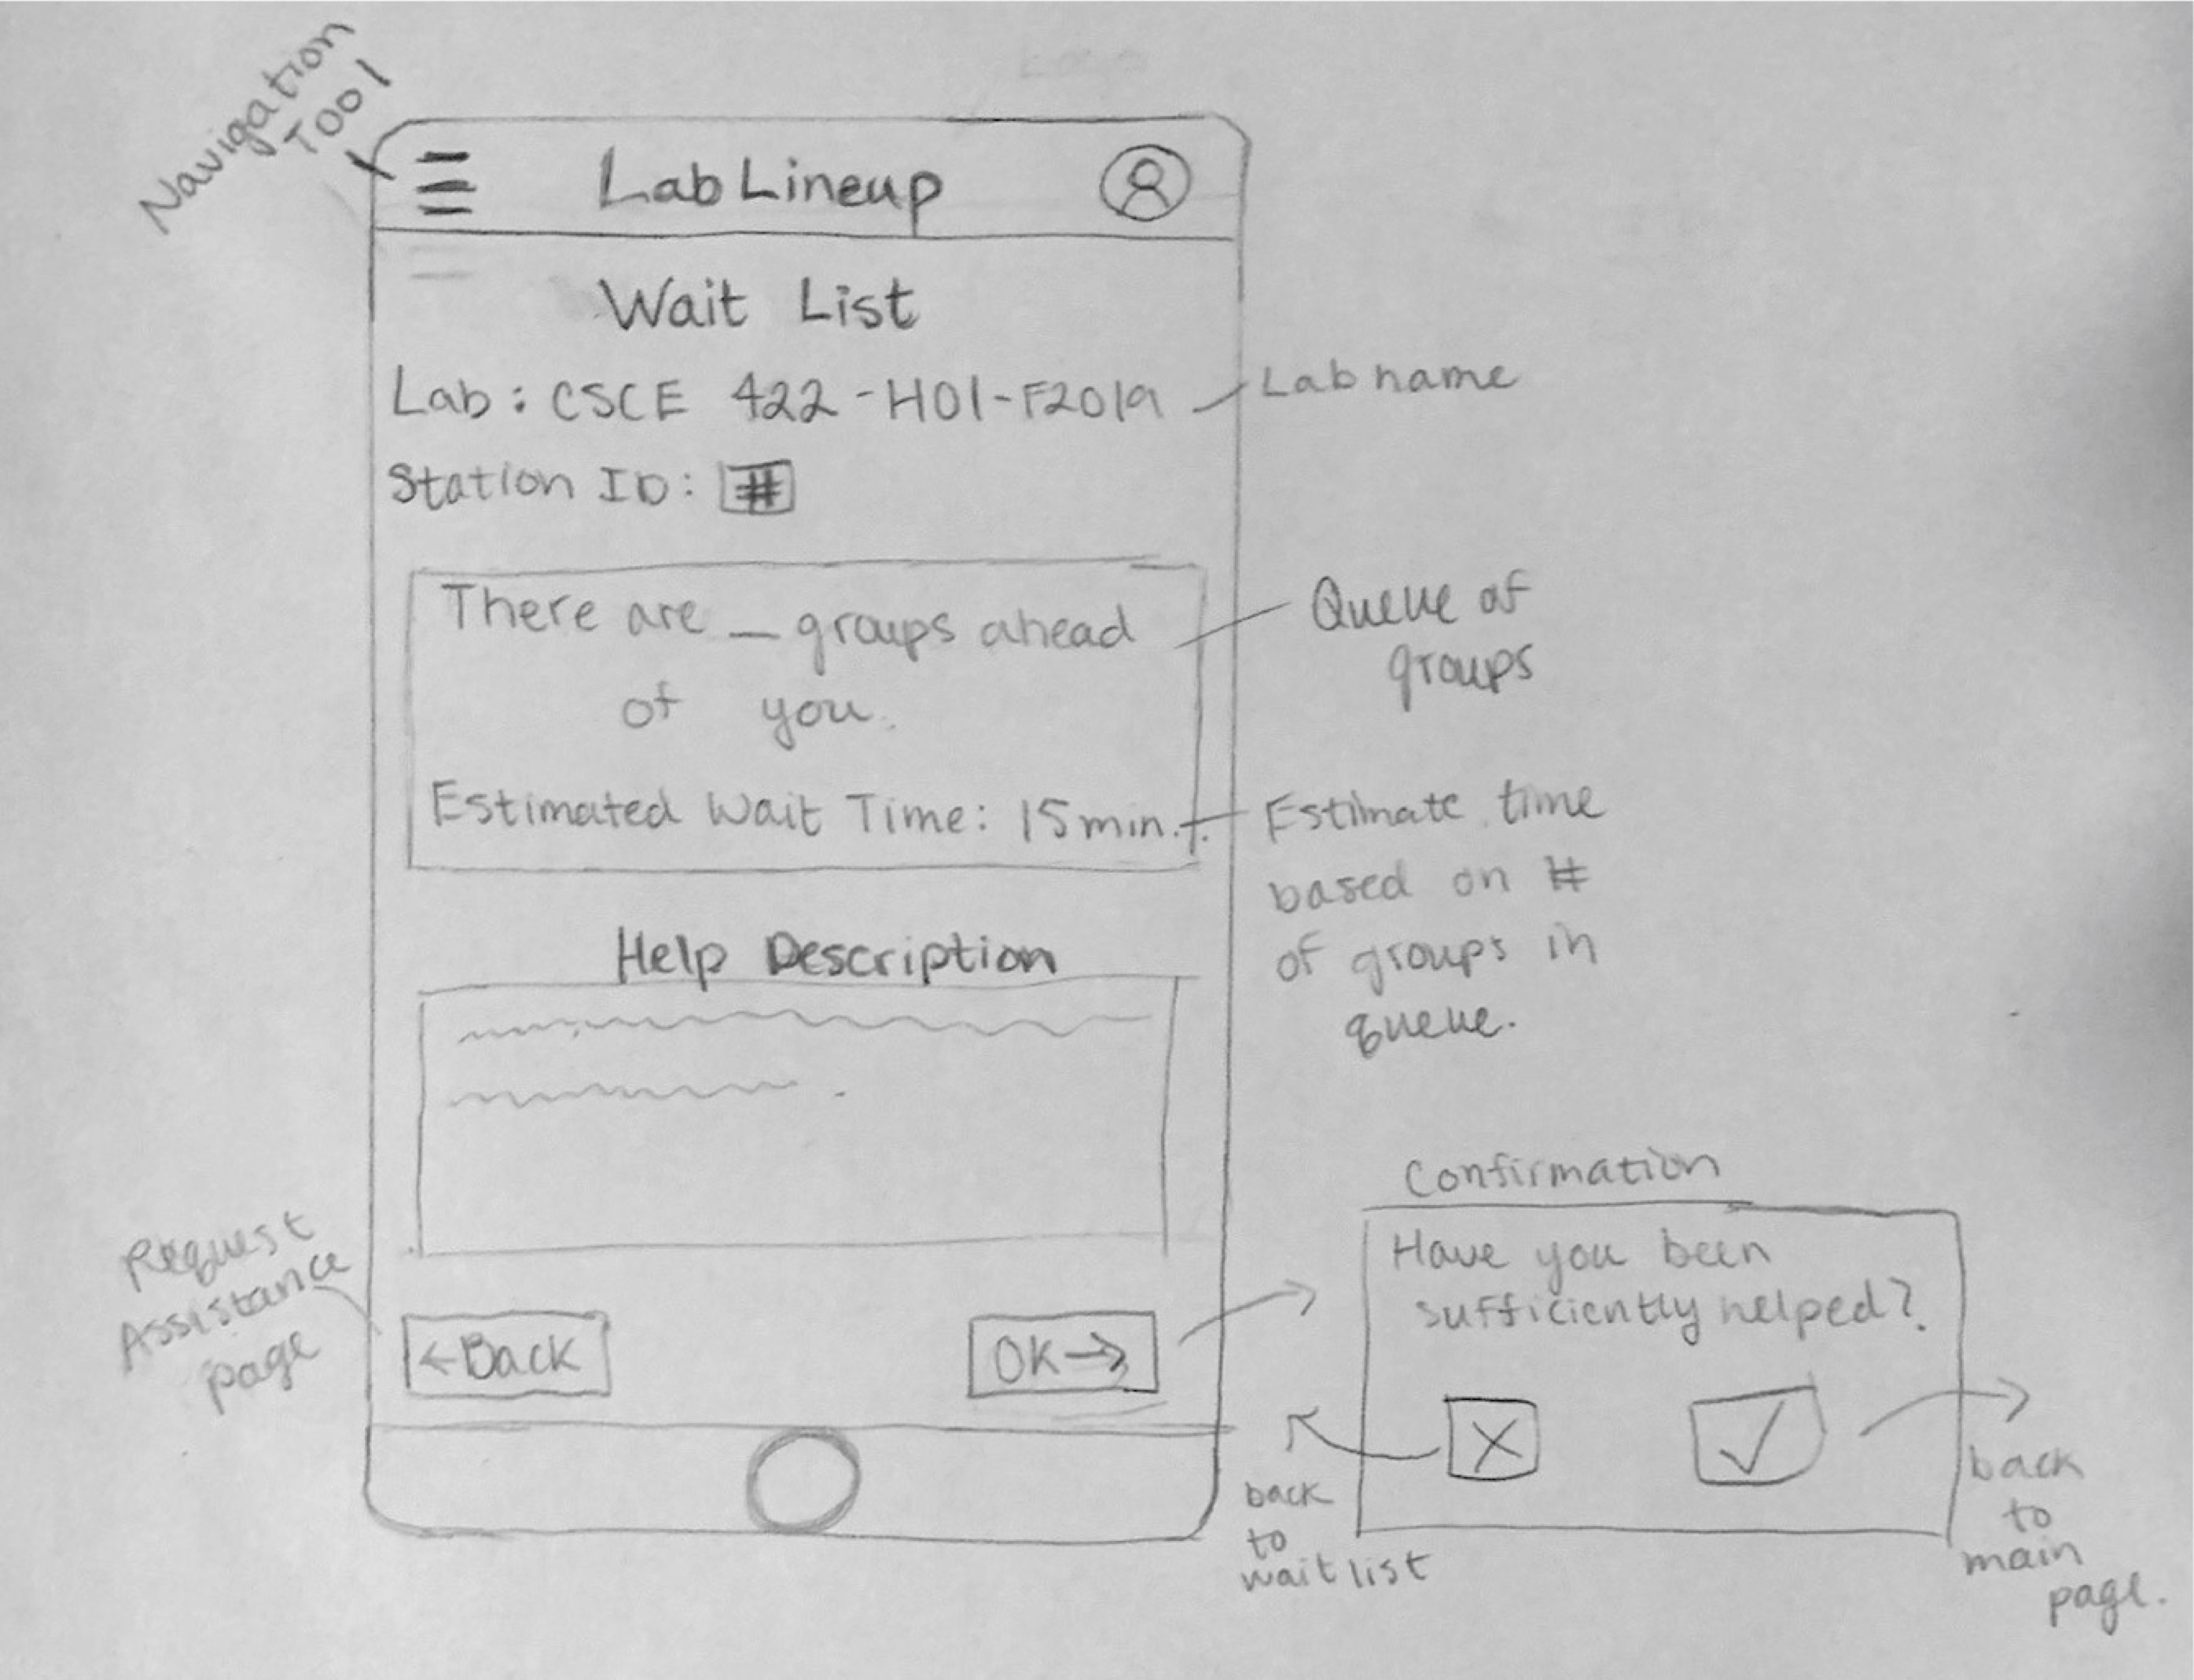 Navigation
Tool
Lab Lineup
Wait List
Lab: CSCE 422-H01-F2019
Lab name
Station ID: #
There are _ groups ahead
of you.
Queue of
groups
Estimated Wait Time: 15 min.
Estimate time
based on #
of groups in
queue.
Help Description
Request
Assistance
page
←Back
OK→
Confirmation
Have you been
sufficiently helped?
X ✓
back
to
waitlist
back
to
main
page.